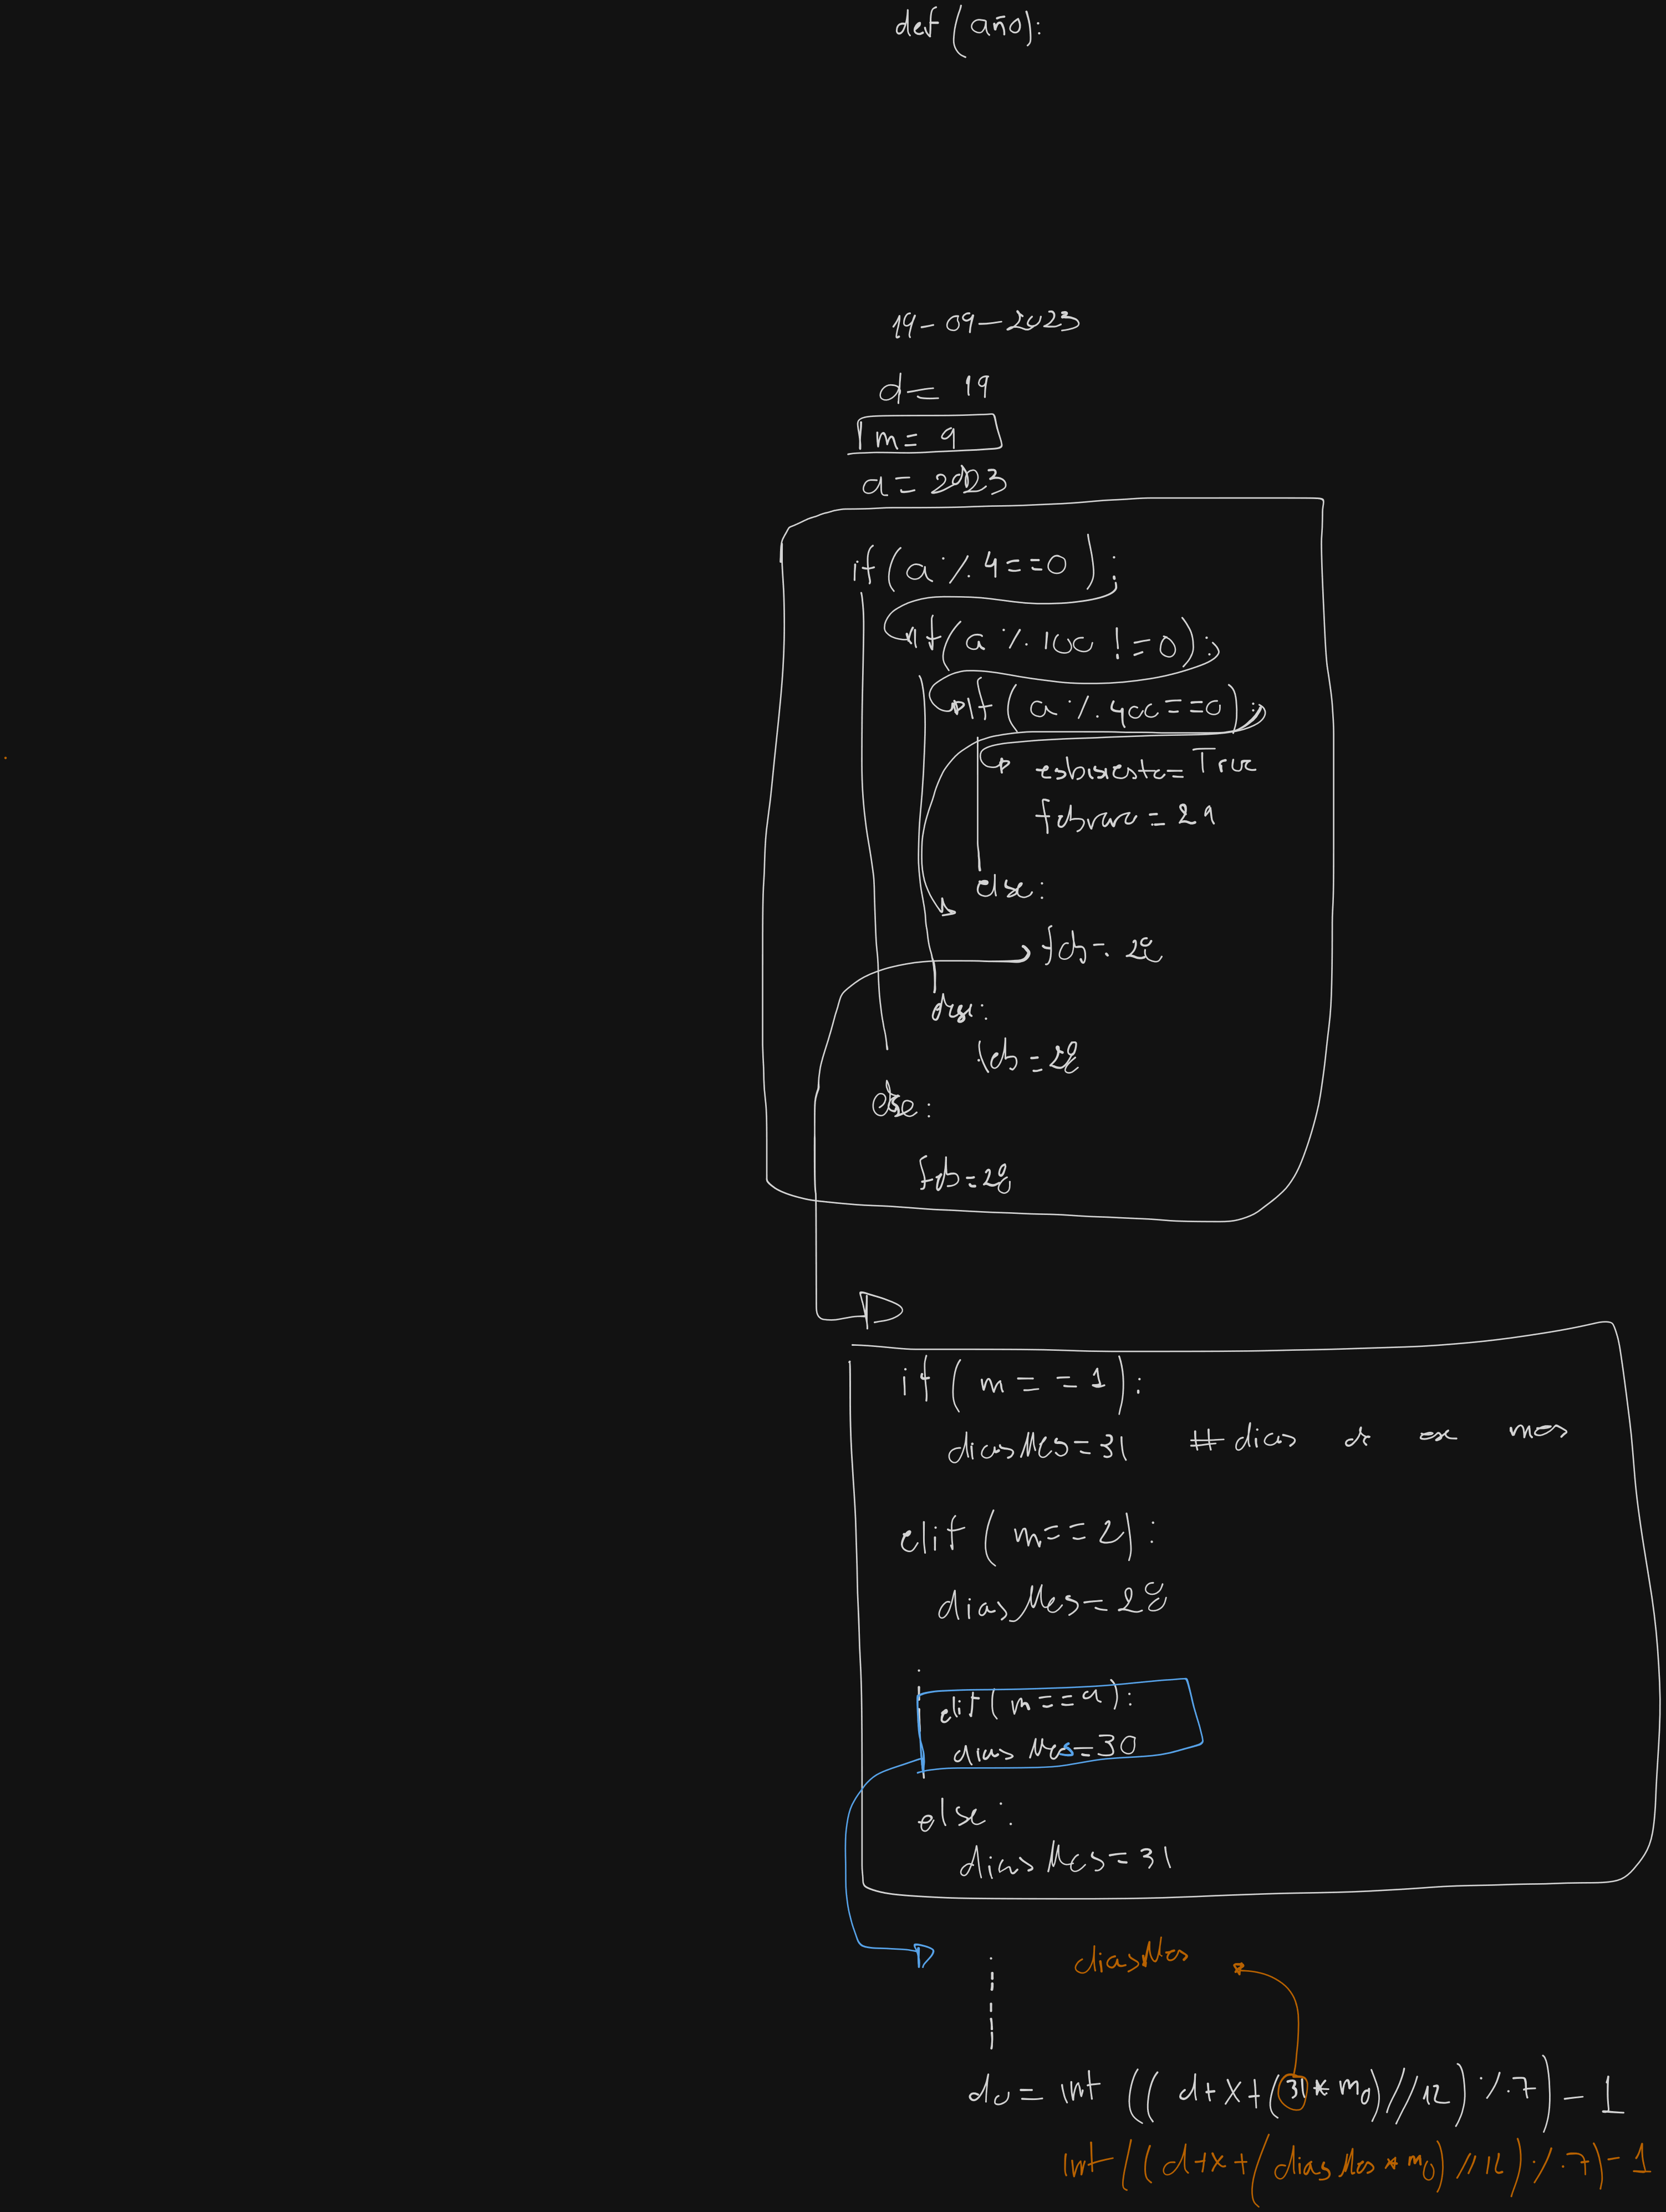 def (año):
19-09-2023
d= 19
m= 9
a= 2023
if(a % 4==0):
if(a % 100 !=0):
if (a % 400==0):
esbisiesto= True
febrero = 29
else:
feb= 28
else:
feb =28
else:
feb=28
if ( m = = 1):
diasMes=31 #dias de ese mes
elif ( m==2):
diasMes=28
elif( m==9):
diasMes=30
else:
diasMes=31
diasMes
do = int (( d+x+(31* mo)//12) % 7) - 1
int ((d+x+(diasMes * mo)//12) % 7)-1